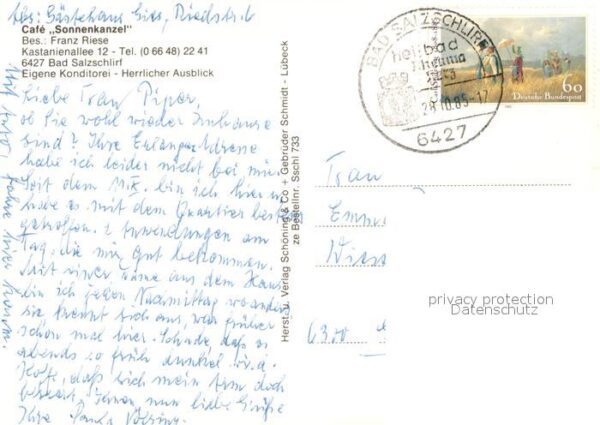 Gästehaus Gies, Riedstr. 6
Café „Sonnenkanzel"
Bes.: Franz Riese
Kastanienallee 12 - Tel. (0 66 48) 22 41
6427 Bad Salzschlirf
Eigene Konditorei - Herrlicher Ausblick
Liebe Frau Piper,
ob Sie wohl wieder zuhause
sind? Ihre Erlanger Adresse
habe ich leider nicht bei mir.
Seit dem bin ich hier u.
habe es mit dem Quartier bestens
getroffen. 2 Anwendungen am
Tag, die mir gut bekommen.
Mit einer Dame aus dem Haus
bin ich jeden Nachmittag woanders
sie kennt sich aus, war früher
schon mal hier. Schade, daß es
abends so früh dunkel wird.
Hoffe, daß sich mein Arm doch
bessert. Ihnen nun liebe Grüße
Ihre
Mit Auto fahre hier
Herst. u. Verlag Schöning & Co + Gebrüder Schmidt - Lübeck
ze Bestellnr. Sschl 733
BAD SALZSCHLIRF
heilbad
rheuma
10.85-17
6427
60
Deutsche Bundespost
Frau
Emm
Wies
6300
privacy protection
Datenschutz